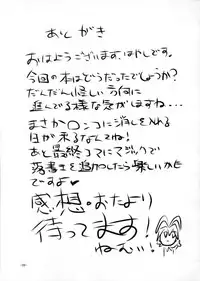 あとがき
おはようございます、はやしです。
今回の本はどうだったでしょうか?
だんだん怪しい方向に
進んでる様な気がするね・・・
まさか〇ンコに消しを入れる
日が来るなんてね!
あと最終コマにマジックで
落書きを追加したら楽しいかも
ですよ♥
感想・おたより
待ってます!
ねむい!